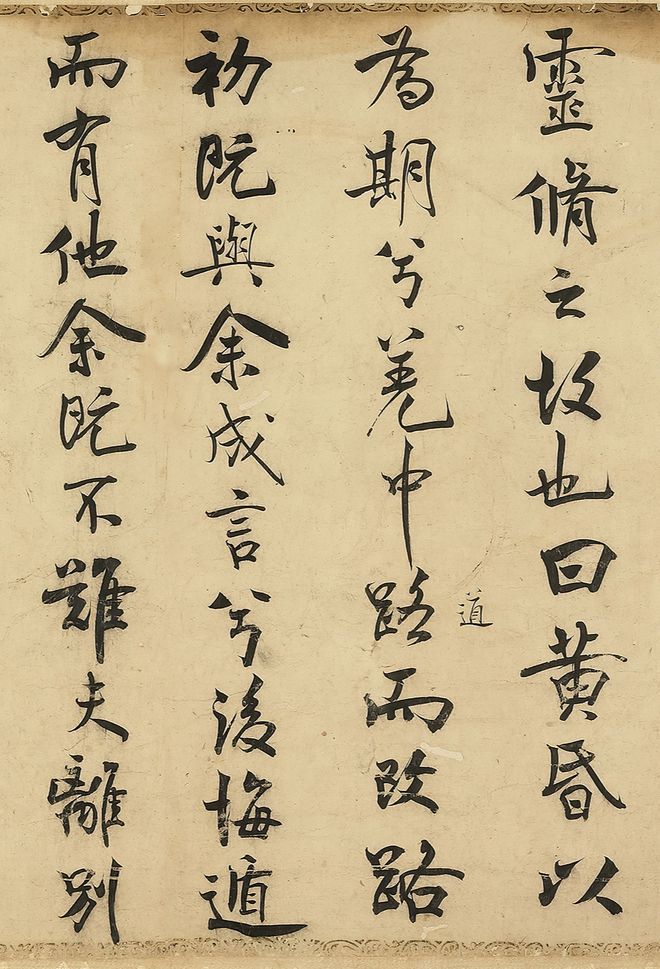 靈脩之故也曰黃昏以
為期兮羌中路而改路
道
初既與余成言兮後悔遁
而有他余既不難夫離別